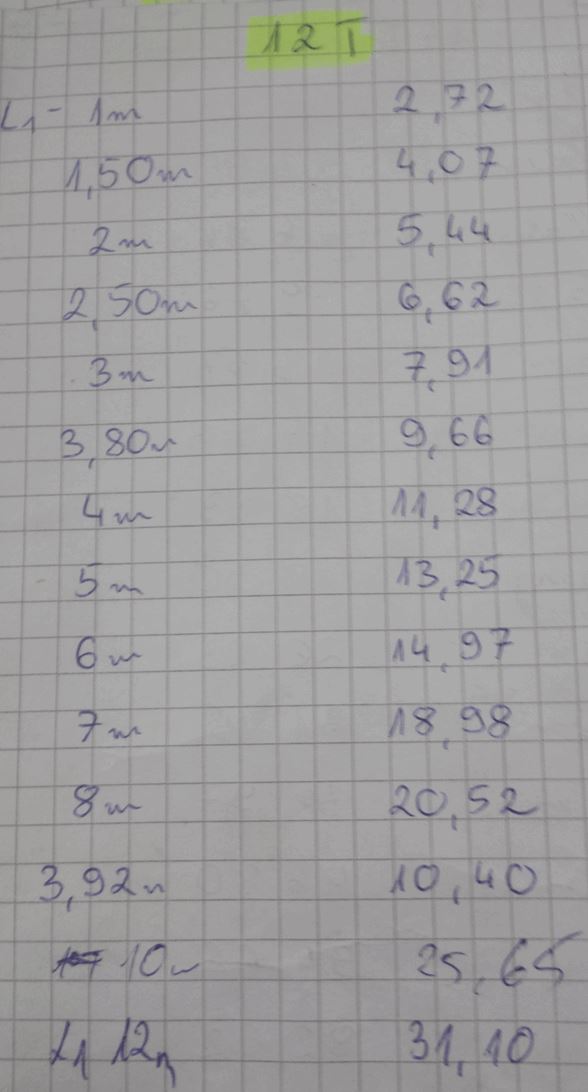 12 T
L1 - 1m 2,72
1,50m 4,07
2m 5,44
2,50m 6,62
3m 7,91
3,80m 9,66
4m 11,28
5m 13,25
6m 14,97
7m 18,98
8m 20,52
3,92m 10,40
10m 25,65
L1 12m 31,10